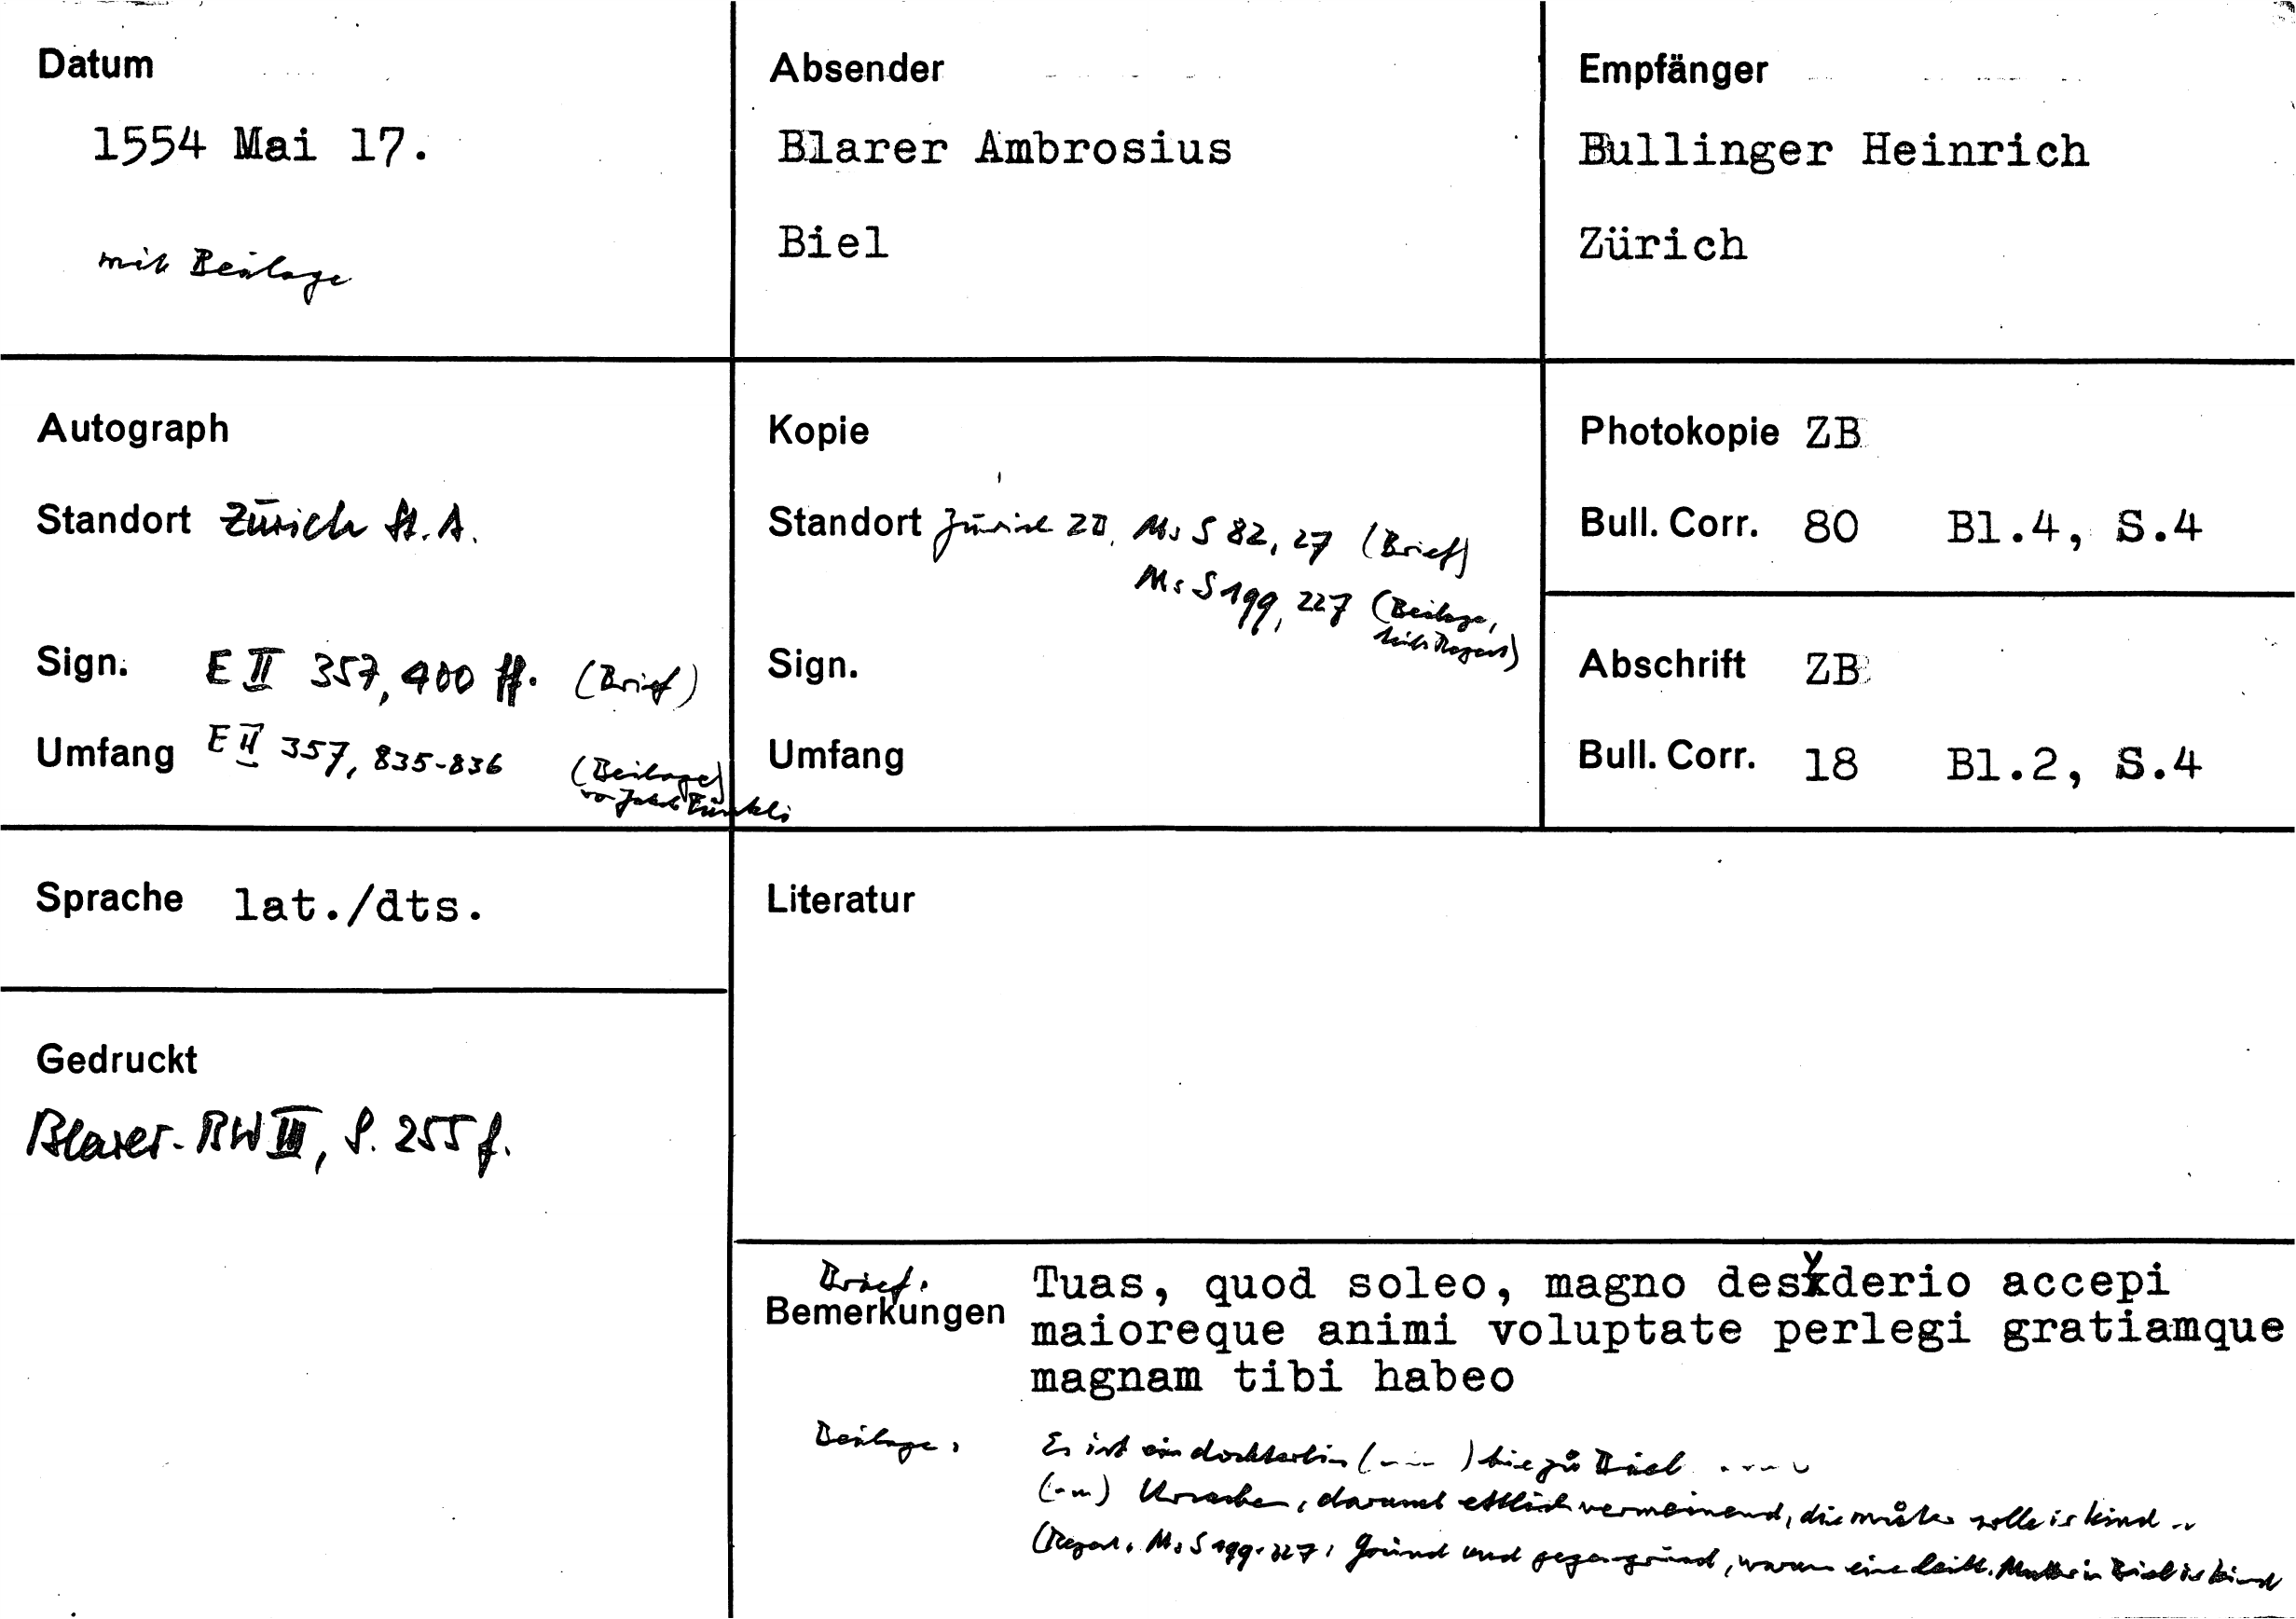 Datum
1554 Mai 17.
mit Beilage
Absender
Blarer Ambrosius
Biel
Empfänger
Bullinger Heinrich
Zürich
Autograph
Standort Zürich St.A.
Sign. E II 357, 400 ff. (Brief)
Umfang E II 357, 835-836 (Beilage)
Kopie
Standort Zürich ZB, Ms S 82, 27 (Brief)
Ms S 199, 227 (Beilage,
Sign.
Umfang
Photokopie ZB
Bull. Corr. 80 Bl.4, S.4
Abschrift ZB
Bull. Corr. 18 Bl.2, S.4
Sprache lat./dts.
Literatur
Gedruckt
Blarer-BW III, S. 255 f.
Brief:
Bemerkungen Tuas, quod soleo, magno desyderio accepi
maioreque animi voluptate perlegi gratiamque
magnam tibi habeo
Beilage: Es ist ein dochterlin (---) hie zů Biel ....
(---) Ursachen, darumb ettlich vermeinend, die můter solle ir kind ..
(Regest: Ms S 199, 227: Gründ und gegengründ, warum eine Mutter in Biel ir kind